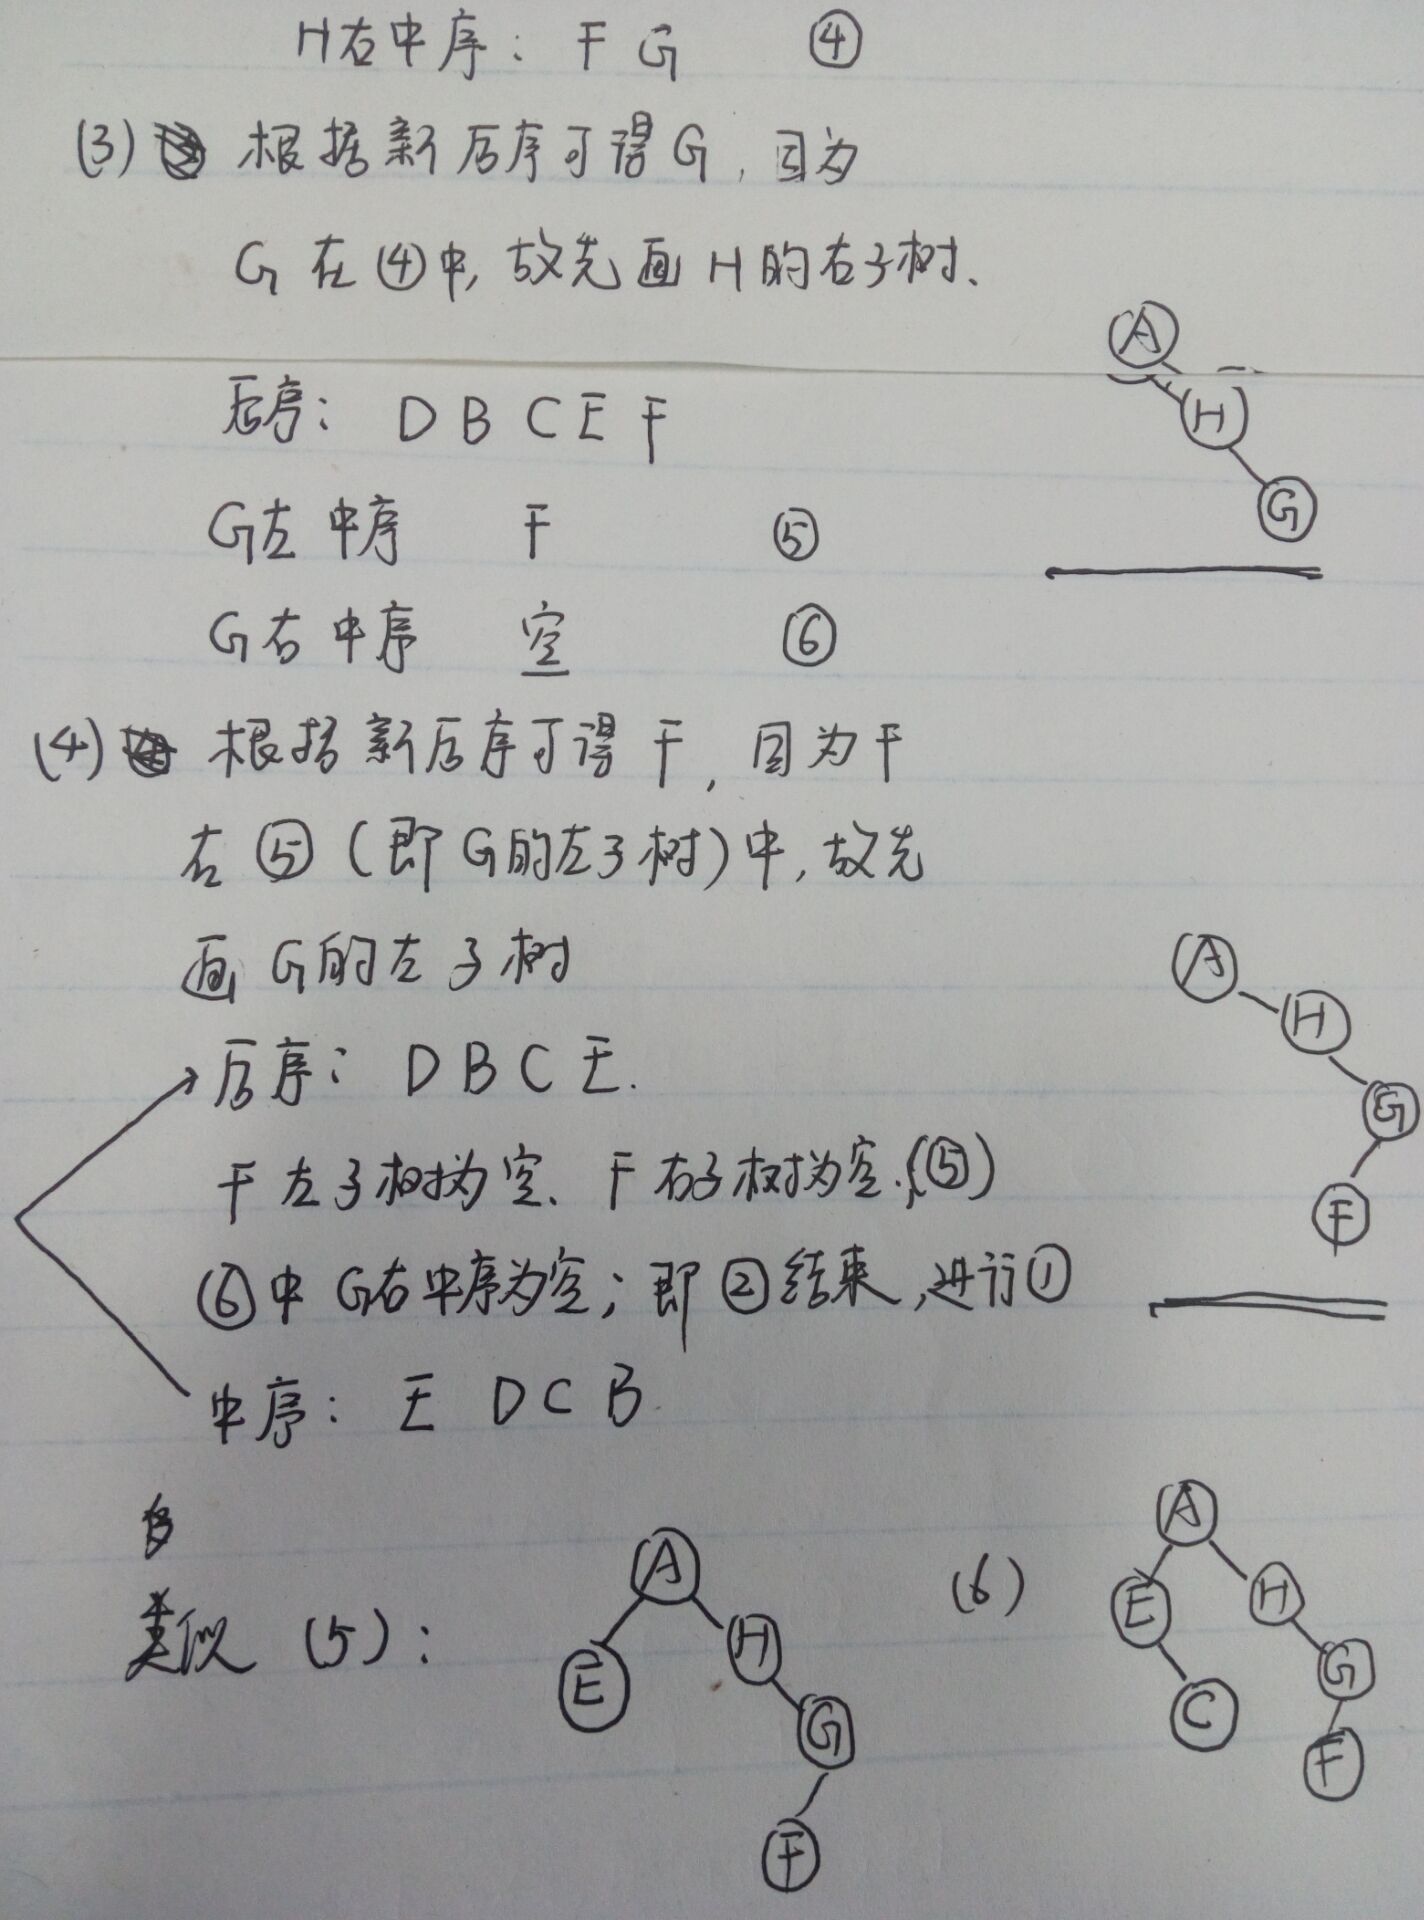 H右中序：F G ④
(3) 根据新后序可得G，因为
G在④中,故先画H的右子树、
A
H
G
后序：D B C E F
G左中序 F ⑤
G右中序 空 ⑥
(4) 根据新后序可得F，因为F
在⑤(即G的左子树)中,故先
画G的左子树
A
H
G
F
后序：D B C E.
F左子树为空、F右子树为空.(⑤)
⑥中G右中序为空；即②结束,进行①
中序：E D C B
类似 (5)：
A
E
H
G
F
(6)
A
E
H
C
G
F